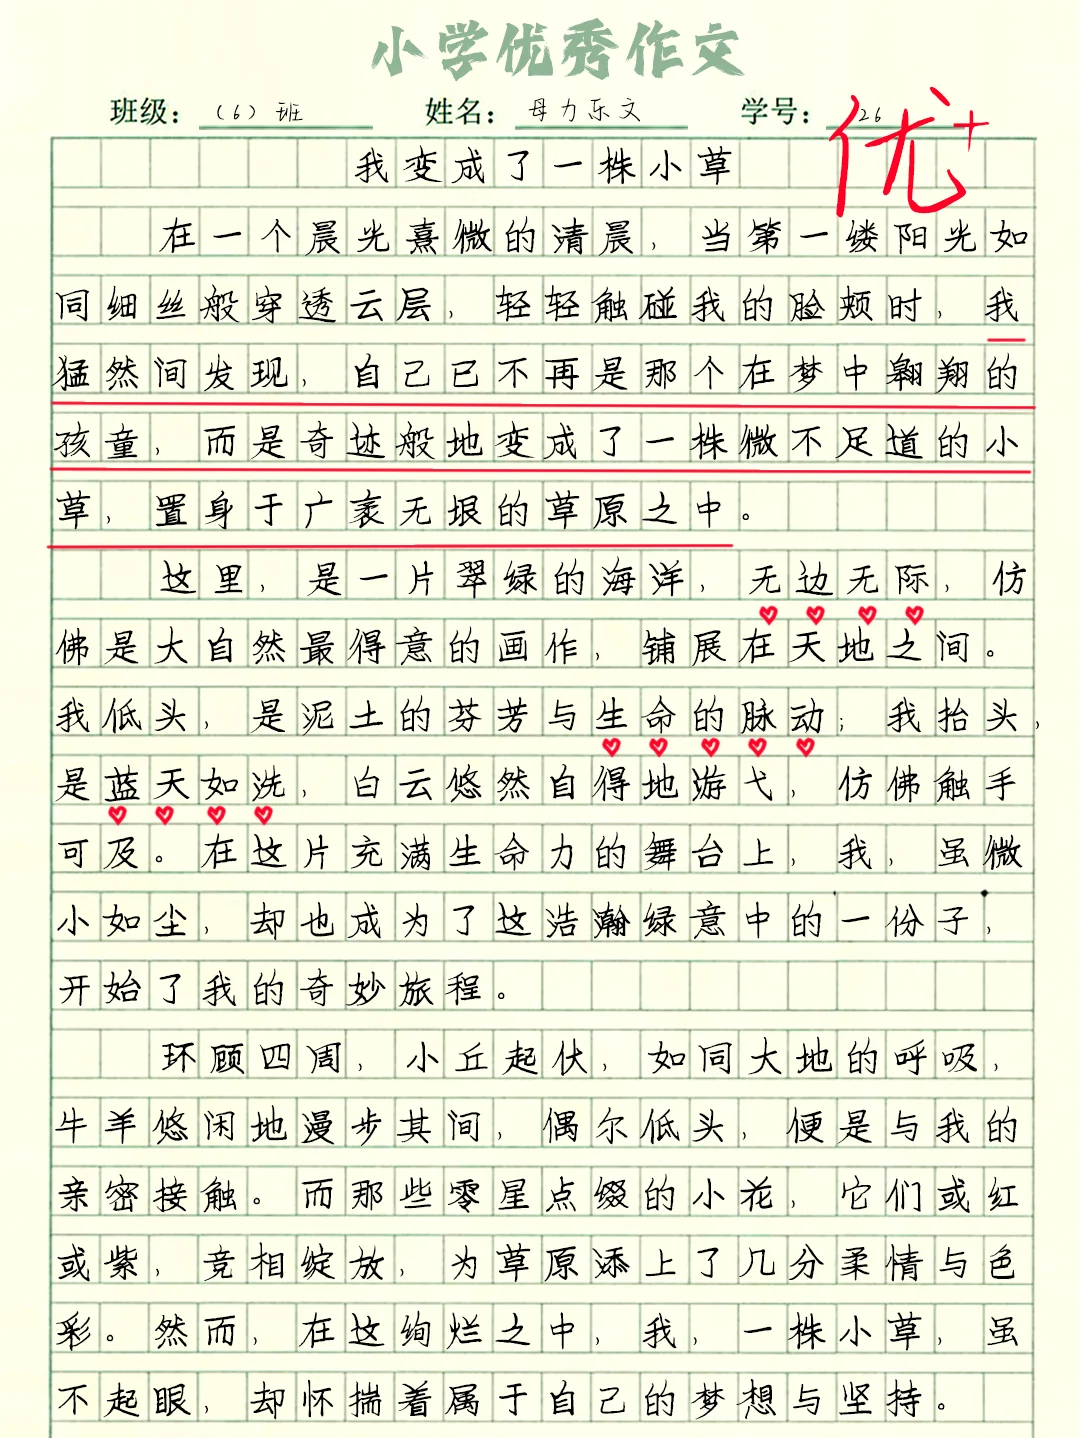 小学优秀作文
班级：（6）班 姓名：母力乐文 学号：26
优+
我变成了一株小草
在一个晨光熹微的清晨，当第一缕阳光如
同细丝般穿透云层，轻轻触碰我的脸颊时，我
猛然间发现，自己已不再是那个在梦中翱翔的
孩童，而是奇迹般地变成了一株微不足道的小
草，置身于广袤无垠的草原之中。
这里，是一片翠绿的海洋，无边无际，仿
佛是大自然最得意的画作，铺展在天地之间。
我低头，是泥土的芬芳与生命的脉动；我抬头，
是蓝天如洗，白云悠然自得地游弋，仿佛触手
可及。在这片充满生命力的舞台上，我，虽微
小如尘，却也成为了这浩瀚绿意中的一份子，
开始了我的奇妙旅程。
环顾四周，小丘起伏，如同大地的呼吸，
牛羊悠闲地漫步其间，偶尔低头，便是与我的
亲密接触。而那些零星点缀的小花，它们或红
或紫，竞相绽放，为草原添上了几分柔情与色
彩。然而，在这绚烂之中，我，一株小草，虽
不起眼，却怀揣着属于自己的梦想与坚持。